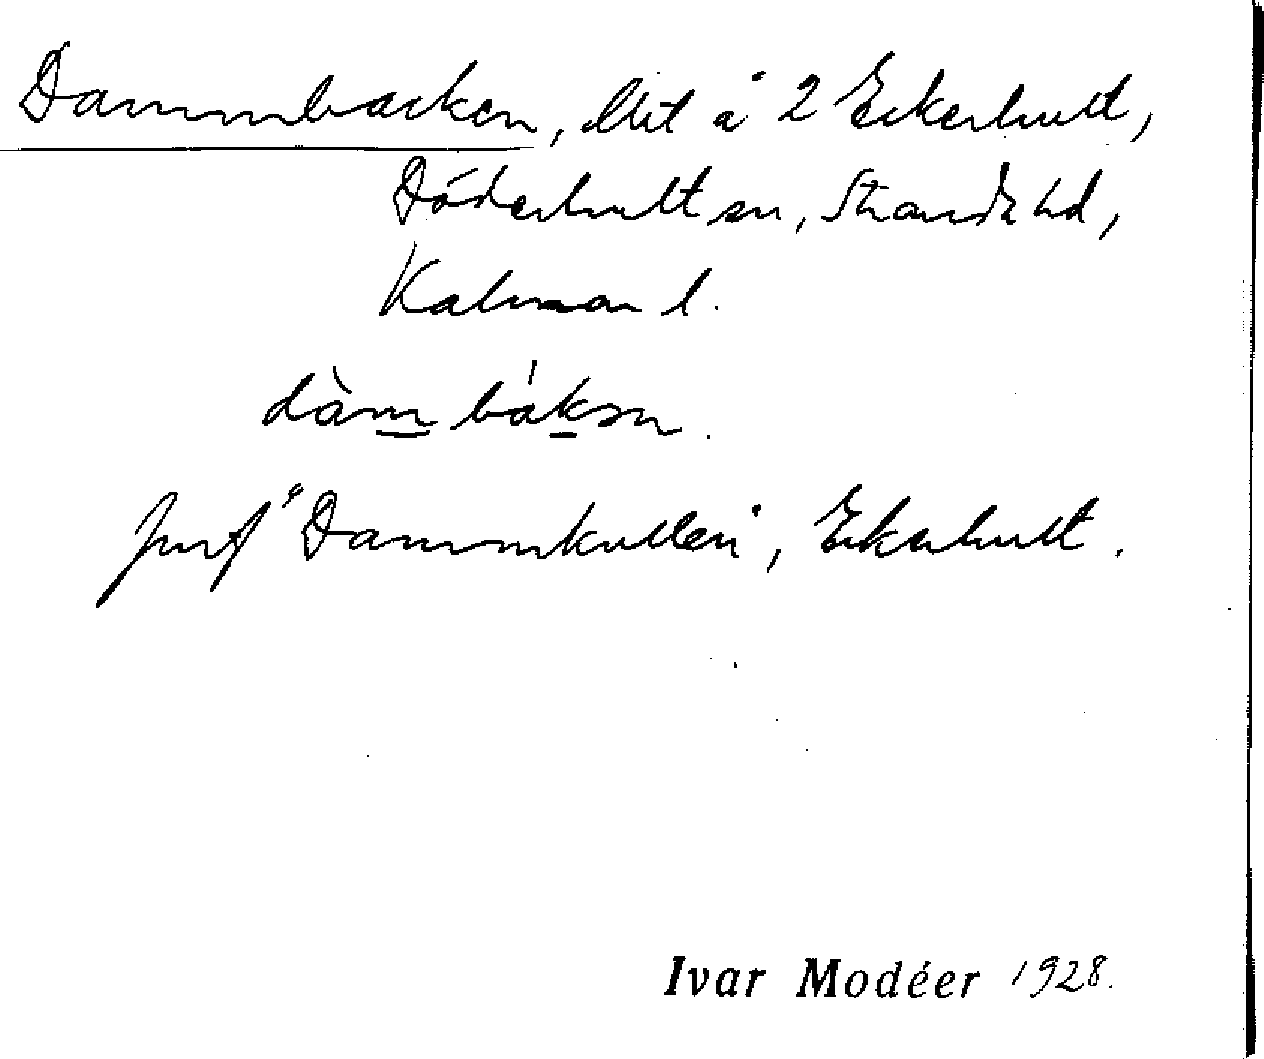 Dammbacken, lht å 2 Eckerhult,
Döderhult sn, Stranda hd,
Kalmar l.
dàm bákən.
Jmf "Dammkullen", Ekerhult.
Ivar Modéer 1928.